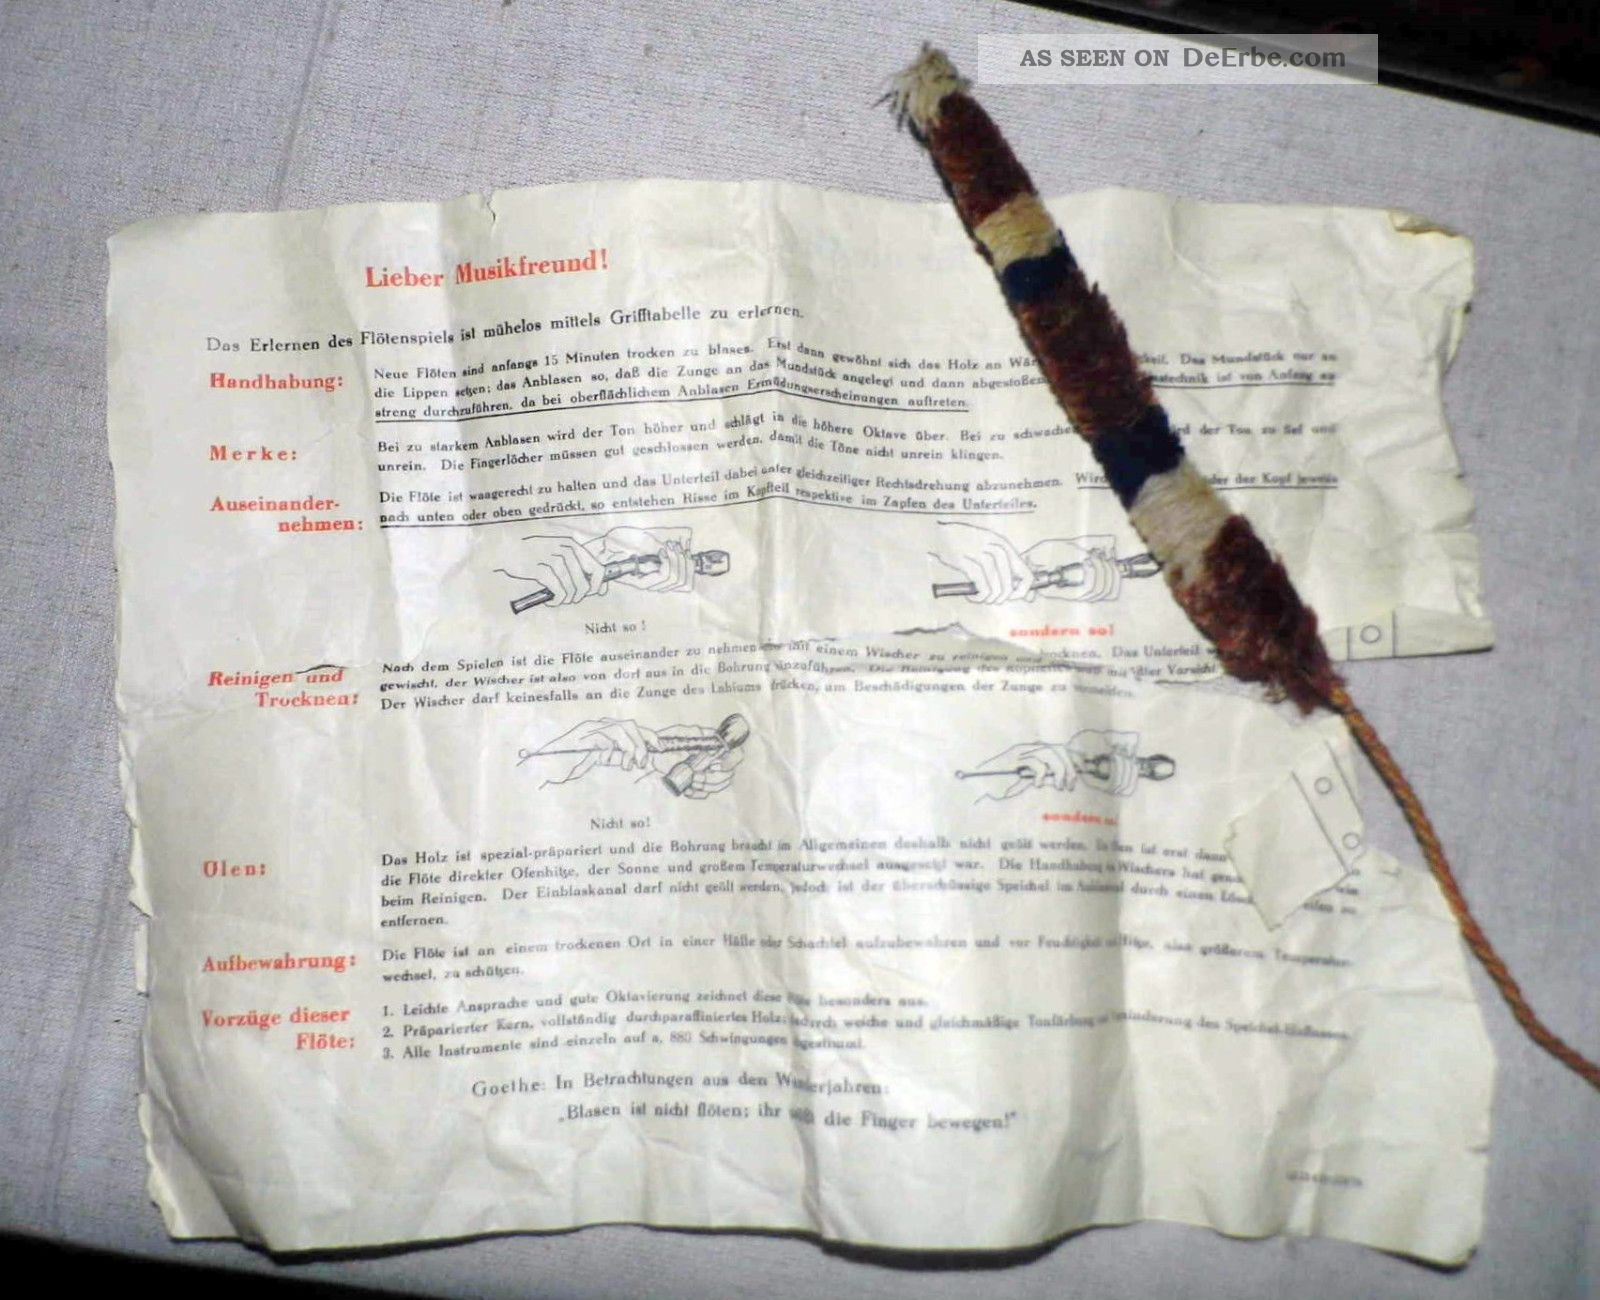 AS SEEN ON DeErbe.com
Lieber Musikfreund!
Das Erlernen des Flötenspiels ist mühelos mittels Grifftabelle zu erlernen.
Handhabung:
Neue Flöten sind anfangs 15 Minuten trocken zu blasen. Erst dann gewöhnt sich das Holz an Das Mundstück nur an
die Lippen setzen; das Anblasen so, daß die Zunge an das Mundstück angelegt und dann ist von Anfang an
streng durchzuführen, da bei oberflächlichem Anblasen Ermüdungserscheinungen auftreten.
Merke:
Bei zu starkem Anblasen wird der Ton höher und schlägt in die höhere Oktave über. Bei zu der Ton zu tief und
unrein. Die Fingerlöcher müssen gut geschlossen werden, damit die Töne nicht unrein klingen.
Auseinander-
nehmen:
Die Flöte ist waagerecht zu halten und das Unterteil dabei unter gleichzeitiger Rechtsdrehung abzunehmen. der Kopf jeweils
nach unten oder oben gedrückt, so entstehen Risse im Kopfteil respektive im Zapfen des Unterteiles.
Nicht so!
sondern so!
Reinigen und
Trocknen:
Nach dem Spielen ist die Flöte auseinander zu nehmen mit einem Wischer zu reinigen Das Unterteil
gewischt, der Wischer ist also von dort aus in die Bohrung einzuführen. Die Reinigung des mit Vorsicht
Der Wischer darf keinesfalls an die Zunge des Labiums drücken, um Beschädigungen der Zunge zu vermeiden.
Nicht so!
sondern
Ölen:
Das Holz ist spezial-präpariert und die Bohrung braucht im Allgemeinen deshalb nicht geölt werden. ist erst dann
die Flöte direkter Ofenhitze, der Sonne und großem Temperaturwechsel ausgesetzt war. Die Handhabung Wischers hat
beim Reinigen. Der Einblaskanal darf nicht geölt werden, jedoch ist der überschüssige Speichel im durch einen
entfernen.
Aufbewahrung:
Die Flöte ist an einem trockenen Ort in einer Hülle oder Schachtel aufzubewahren und vor größerem Temperatur-
wechsel, zu schützen.
Vorzüge dieser
Flöte:
1. Leichte Ansprache und gute Oktavierung zeichnet diese Flöte besonders aus.
2. Präparierter Kern, vollständig durchparaffiniertes Holz; dadurch weiche und gleichmäßige Tonfärbung des
3. Alle Instrumente sind einzeln auf a, 880 Schwingungen
Goethe: In Betrachtungen aus den Wanderjahren:
„Blasen ist nicht flöten; ihr die Finger bewegen!"